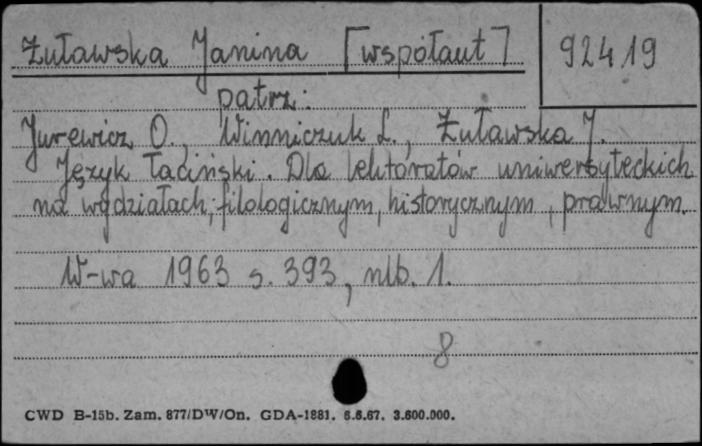 Żuławska Janina [współaut] 92419
patrz:
Jurewicz O., Winniczuk L., Żuławska J.
Język łaciński. Dla lektoratów uniwersyteckich
na wydziałach, filologicznym, historycznym, prawnym.
W-wa 1963 s. 393, nlb. 1.
8
CWD B-15b. Zam. 877/DW/On. GDA-1881. 6.6.67. 3.600.000.